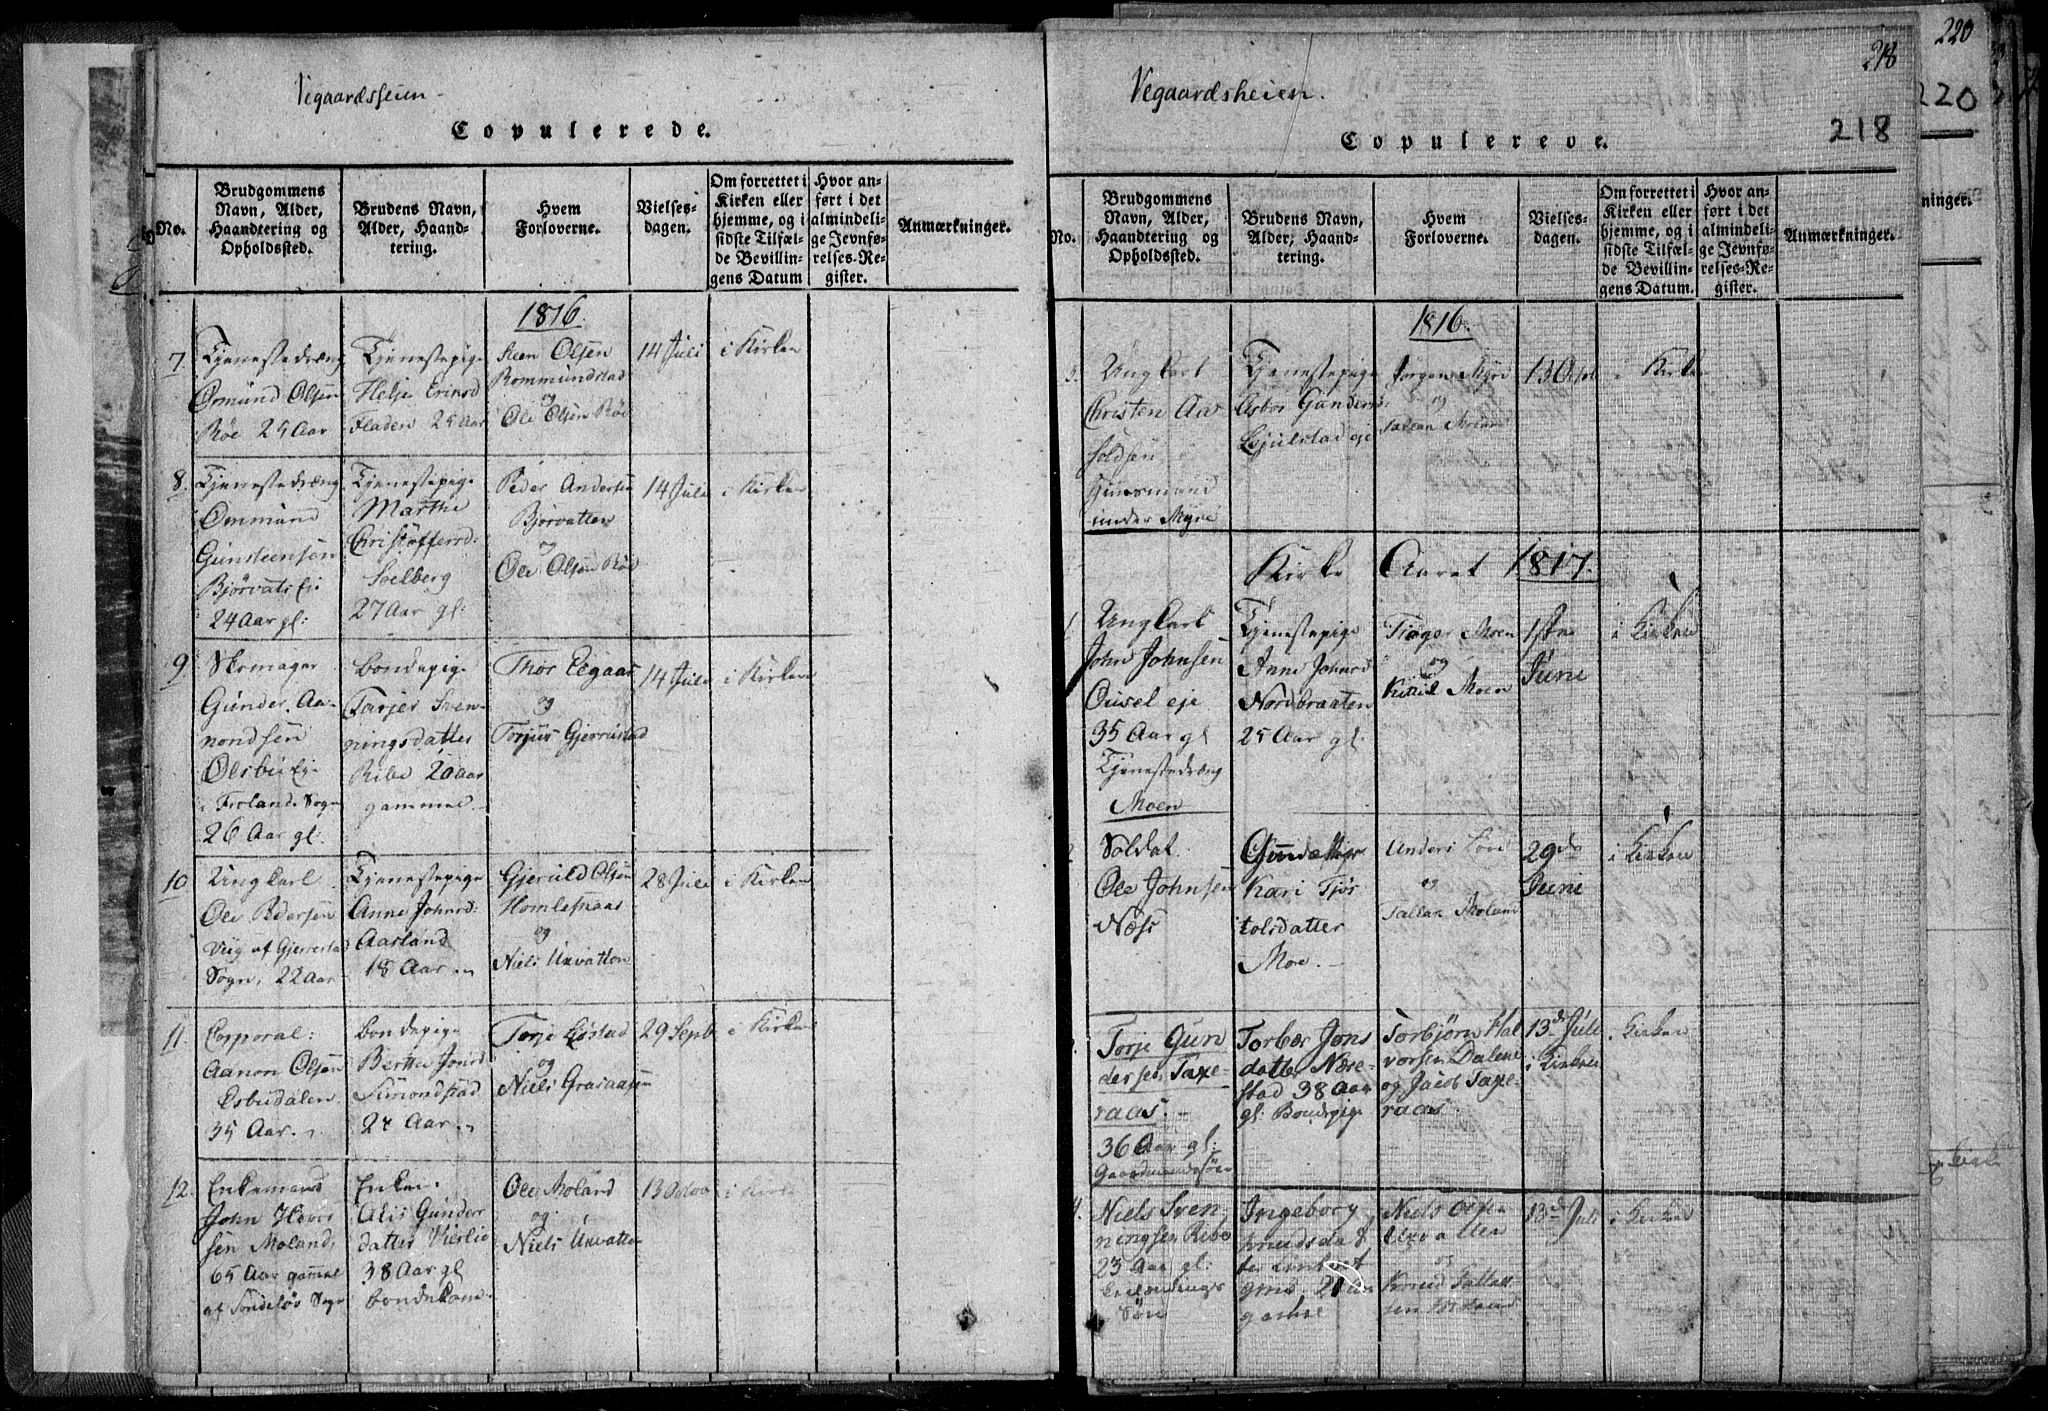 Vegaardsheien.
Copulerede.
No.
Brudgommens Navn, Alder, Haandtering og Opholdssted.
Brudens Navn, Alder, Haandtering.
Hvem Forloverne.
Vielsesdagen.
Om forrettet i Kirken eller hjemme, og i sidste Tilfælde Bevillingens Datum
Hvor anført i det almindelige Jevnførelses-Register.
Anmærkninger.
1816
7.
Tjenestedræng
Osmund Olsen
Røe 25 Aar
Tjenestepige
Helje
Fladen 25 Aar
Steen Olsen
Rommundstad
og
Ole Olsen Röe
14 Juli
i Kirken
8.
Tjenestedræng
Ommund
Gunsteensen
Bjørvats Eje
24 Aar gl:
Tjenestepige
Marthe
Christoffersd:
Soelberg
27 Aar gl:
Peder Andersen
Bjørvatten
og
Ole Olsen Röe
14 Juli
i Kirken
9.
Skomager
Gunder Aa-
nondsen
Olsbu Eje
i Froland Sogn
26 Aar gl.
Bondepige
Tarjer Sven-
ningsdatter
Ribe 20 Aar
gammel.
Thor Eegaas
og
Torjus Gjerrestad
14 Juli
i Kirken
10
Ungkarl
Ole Pedersen
Viig af Gjerrestad
Sogn, 22 Aar
Tjenestepige
Anne Johnsd:
Aasland
18 Aar
Gjeruld Olsen
Homlesaas
og
Niels Uxvatten
28 Juli
i Kirken
11.
Corporal:
Aanon Olsen
Esbudalen
35 Aar.
Bondepige
Berthe Jonsd
Simonstad
24 Aar.
Torje
og
Niels Graaaasen
29 Septb
i Kirken
12.
Enkemand
John
sen Moland,
65 Aar gammel
af Söndeløv Sogn
Enken
Alis Gunders
datter Vierlie
38 Aar gl
Bondekone
Ole Moland
og
Niels Uxvatten
13 Octob
i Kirken
218
220
220
Vegaardsheien.
218
Copulerede.
No.
Brudgommens Navn, Alder, Haandtering og Opholdssted.
Brudens Navn, Alder, Haandtering.
Hvem Forloverne.
Vielsesdagen.
Om forrettet i Kirken eller hjemme, og i sidste Tilfælde Bevillingens Datum.
Hvor anført i det almindelige Jevnførelses-Register.
Anmærkninger.
1816.
Ungkarl
Christen Aa
soldsen
Huusmand
under Myre
Tjenestepige
Asbor Gunders
eje
Jørgen Myre
og
Tallak Moland
13 Oct
i Kirken
Kirke Aaret 1817.
1
Ungkarl
John Johnsen
Ousel eje
35 Aar gl
Tjenestedræng
Moen
Tjenestepige
Anne Johnsd
Nordbraaten
25 Aar gl.
Moen
og
Moen
1ste
Juni
i Kirken
2
Soldat
Ole Johnsen
Næss
Kari Tjøs
tolsdatter
Moe.
Anders
og
Tallak Moland
29de
Juni
i Kirken
Torje Gun
dersen Taxe-
raas.
36 Aar gl:
Gaardmandssön
Torbær Jons
datter Næse-
stad 38 Aar
gl: Bondepige
Torbjörn Hal
vorsen Dalene
og Jacob Taxe-
raas.
13de Juli
i Kirken
i Kirken
4.
Niels Sven
ningsen Ribe
23 Aar gl:
Sön
Ingeborg
Knudsdat
ter
gamle
Niels Olsen
Uxvatten
og
Knud Tallak
sen
13de Juli
i Kirken